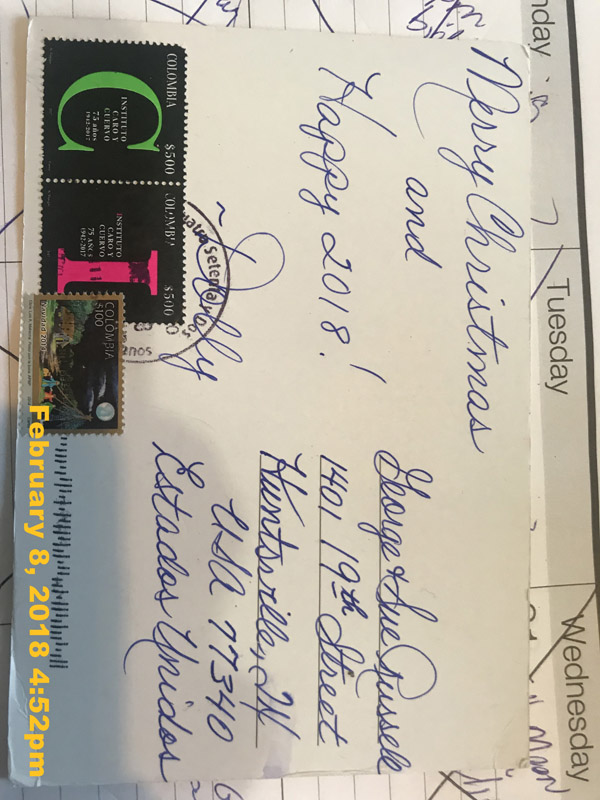 Merry Christmas
and
Happy 2018!
George & Sue Russell
1401 19th Street
Huntsville, TX
USA 77340
Estados Unidos
COLOMBIA
$500
INSTITUTO
CARO Y
CUERVO
75 años
1942-2017
C
COLOMBIA
$500
INSTITUTO
CARO Y
CUERVO
75 AÑOS
1942-2017
I
COLOMBIA
$100
February 8, 2018 4:52pm
Tuesday
Wednesday